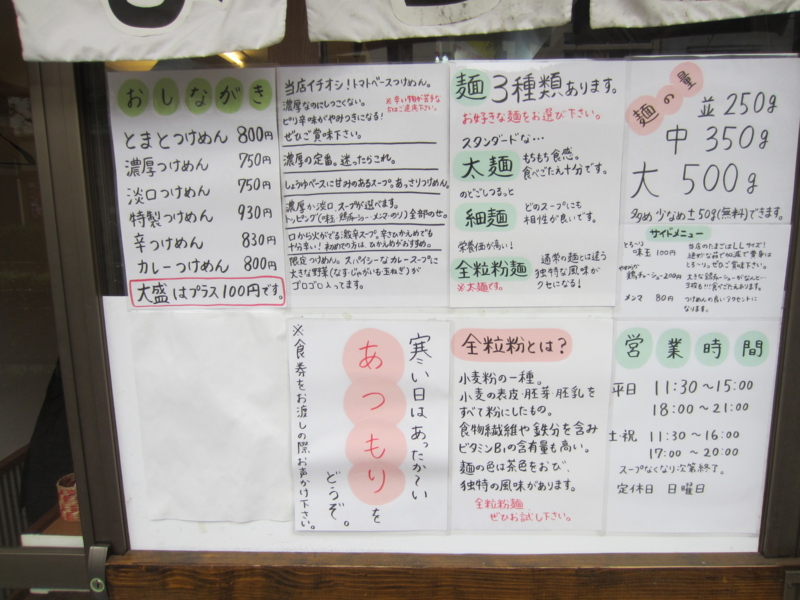 おしながき
とまとつけめん 800円
濃厚つけめん 750円
淡口つけめん 750円
特製つけめん 930円
辛つけめん 830円
カレーつけめん 800円
大盛はプラス100円です。
当店イチオシ!トマトベースつけめん。
濃厚なのにしつこくない。
ピリ辛味がやみつきになる!
ぜひご賞味下さい。
※辛い物が苦手な
方はご遠慮下さい。
濃厚の定番。迷ったらこれ。
しょうゆベースに甘みのあるスープ。あっさりつけめん。
濃厚か淡口スープが選べます。
トッピング(味玉・鶏チャーシュー・メンマ・のり)全部のせ。
口から火がでる!激辛スープ。辛さひかえめでも
十分辛い!初めての方は、ひかえめがおすすめ。
限定つけめん。スパイシーなカレースープに
大きな野菜(なす・じゃがいも・玉ねぎ)が
ゴロゴロ入ってます。
麺3種類あります。
お好きな麺をお選び下さい。
スタンダードな…
太麺 もちもち食感。
食べごたえ十分です。
のどごしつるっと
細麺 どのスープにも
相性が良いです。
栄養価が高い!
全粒粉麺 通常の麺とは違う
独特な風味が
クセになる!
※太麺です。
麺の量
並 250g
中 350g
大 500g
多め 少なめ ±50g(無料)できます。
サイドメニュー
とろ〜り
味玉 100円
当店のたまごはLLサイズ!
とろ〜り。ぜひご賞味下さい。
やわらか
鶏チャーシュー 200円
大きな鶏チャーシューがなんと…
3枚も!!!食べごたえあります。
メンマ 80円
つけめんの良いアクセントに
なります。
寒い日はあったか〜い
あつもりを
どうぞ。
※食券をお渡しの際お声かけ下さい。
全粒粉とは?
小麦粉の一種。
小麦の表皮・胚芽・胚乳を
すべて粉にしたもの。
食物繊維や鉄分を含み
ビタミンB1の含有量も高い。
麺の色は茶色をおび、
独特の風味があります。
全粒粉麺
ぜひお試し下さい。
営業時間
平日 11:30〜15:00
18:00〜21:00
土・祝 11:30〜16:00
17:00〜20:00
スープなくなり次第終了。
定休日 日曜日